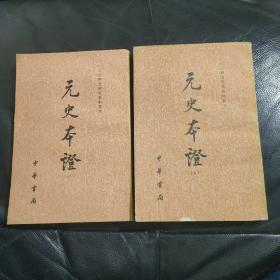 元史本證
中華書局
元史本證
中華書局